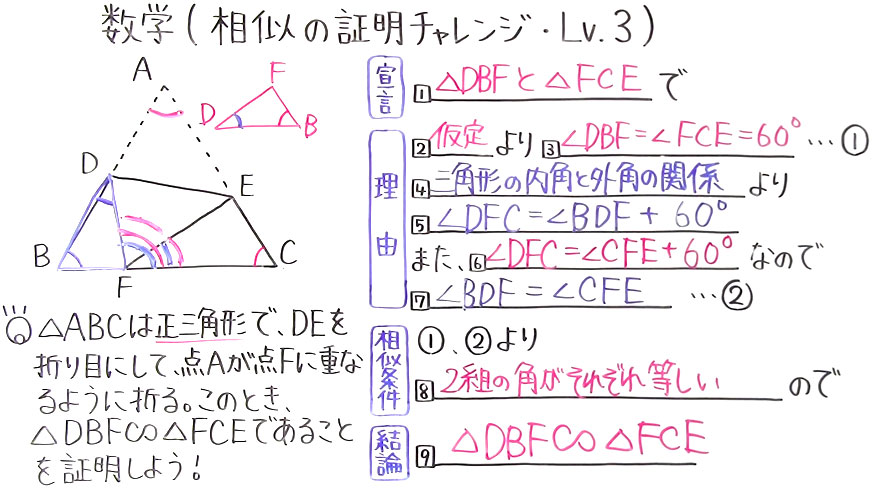 数学(相似の証明チャレンジ・Lv.3)
A
F
D
B
D
E
B
F
C
△ABCは正三角形で、DEを
折り目にして、点Aが点Fに重な
るように折る。このとき、
△DBF∽△FCEであること
を証明しよう!
宣言
1 △DBFと△FCE で
理由
2 仮定 より 3 ∠DBF=∠FCE=60° …①
4 三角形の内角と外角の関係 より
5 ∠DFC=∠BDF+60°
また、6 ∠DFC=∠CFE+60° なので
7 ∠BDF=∠CFE …②
相似条件
①、②より
8 2組の角がそれぞれ等しい ので
結論
9 △DBF∽△FCE